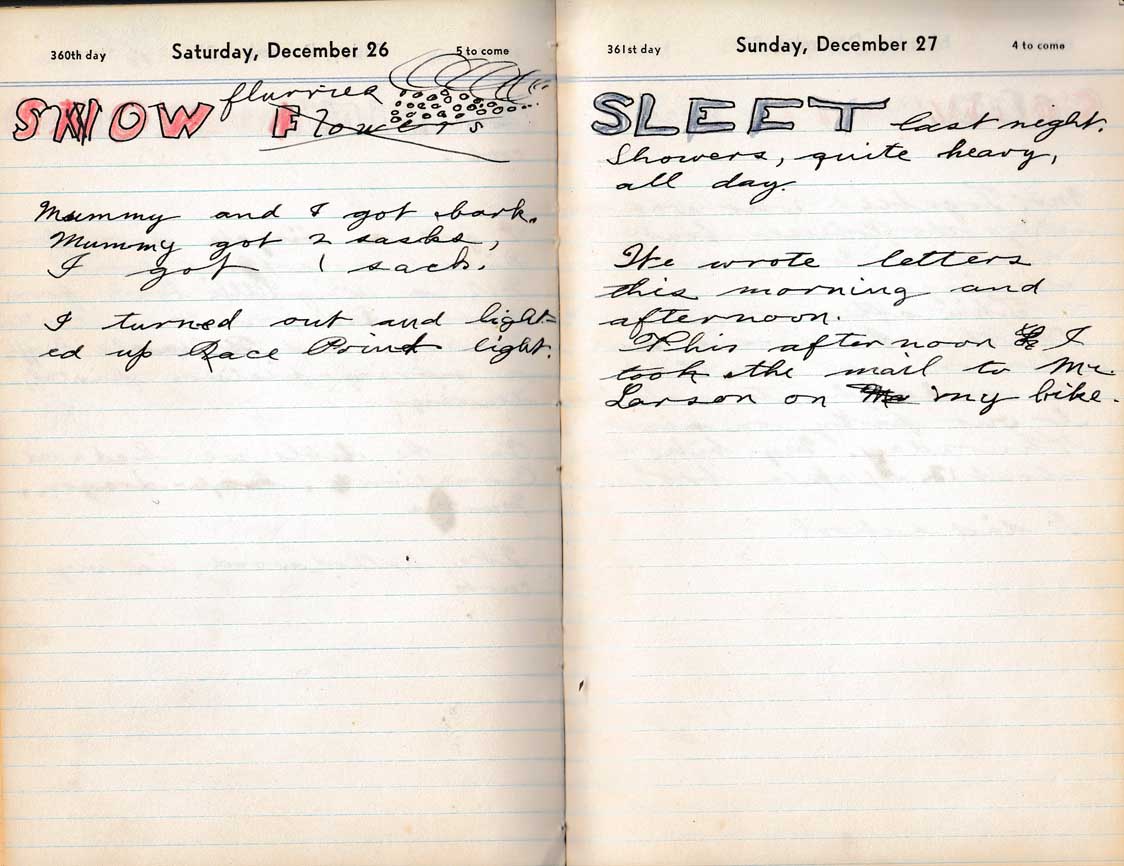 360th day Saturday, December 26 5 to come
SNOW flurries Flowers
Mummy and I got bark.
Mummy got 2 sacks,
I got 1 sack.
I turned out and light-
ed up Race Point light.
361st day Sunday, December 27 4 to come
SLEET last night.
Showers, quite heavy,
all day.
We wrote letters
this morning and
afternoon.
This afternoon I
took the mail to Mr.
Larson on my bike.